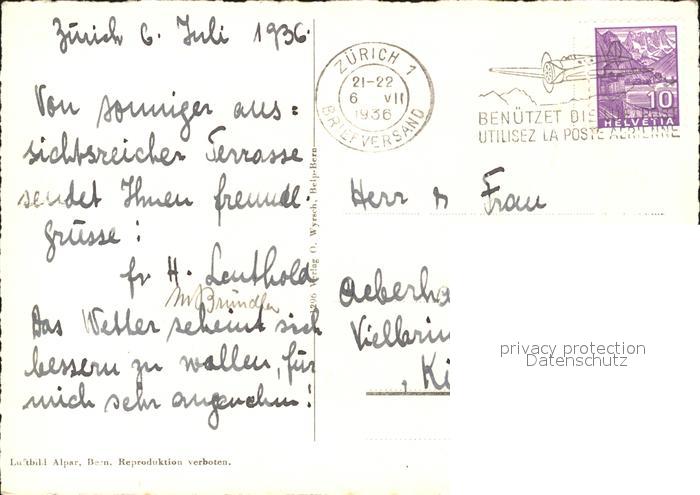 Zürich 6. Juli 1936.
Von sonniger aus=
sichtsreicher Terrasse
sendet Ihnen freundl.
Grüsse!
fr. H. Leuthold
M Bründler
Das Wetter scheint sich
bessern zu wollen, für
mich sehr angenehm!
Luftbild Alpar, Bern. Reproduktion verboten.
Verlag O. Wyrsch, Belp-Bern
ZÜRICH 1
21-22
6 VII
1936
BRIEFVERSAND
BENÜTZET DIE
UTILISEZ LA POSTE AÉRIENNE
10
HELVETIA
Herr u Frau
Aeberha
, Ki
privacy protection
Datenschutz